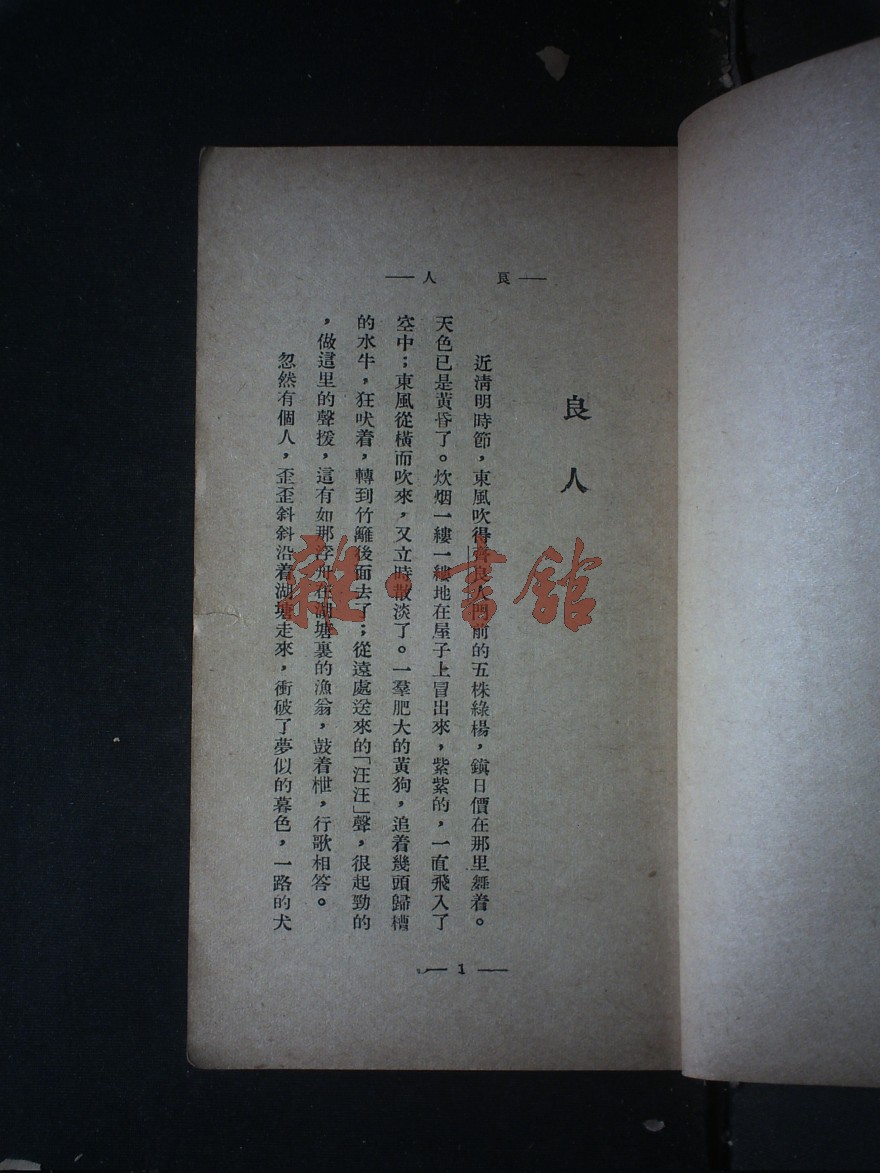 良人
良人
近清明時節，東風吹得齊良人門前的五株綠楊，鎭日價在那里舞着。
天色已是黃昏了。炊烟一縷一縷地在屋子上冒出來，紫紫的，一直飛入了
空中；東風從橫而吹來，又立時散淡了。一羣肥大的黃狗，追着幾頭歸槽
的水牛，狂吠着，轉到竹籬後面去了；從遠處送來的「汪汪」聲，很起勁的
，做這里的聲援，這有如那浮舟在湖塘裏的漁翁，鼓着枻，行歌相答。
忽然有個人，歪歪斜斜沿着湖塘走來，衝破了夢似的暮色，一路的犬
— 1 —
雜·書館